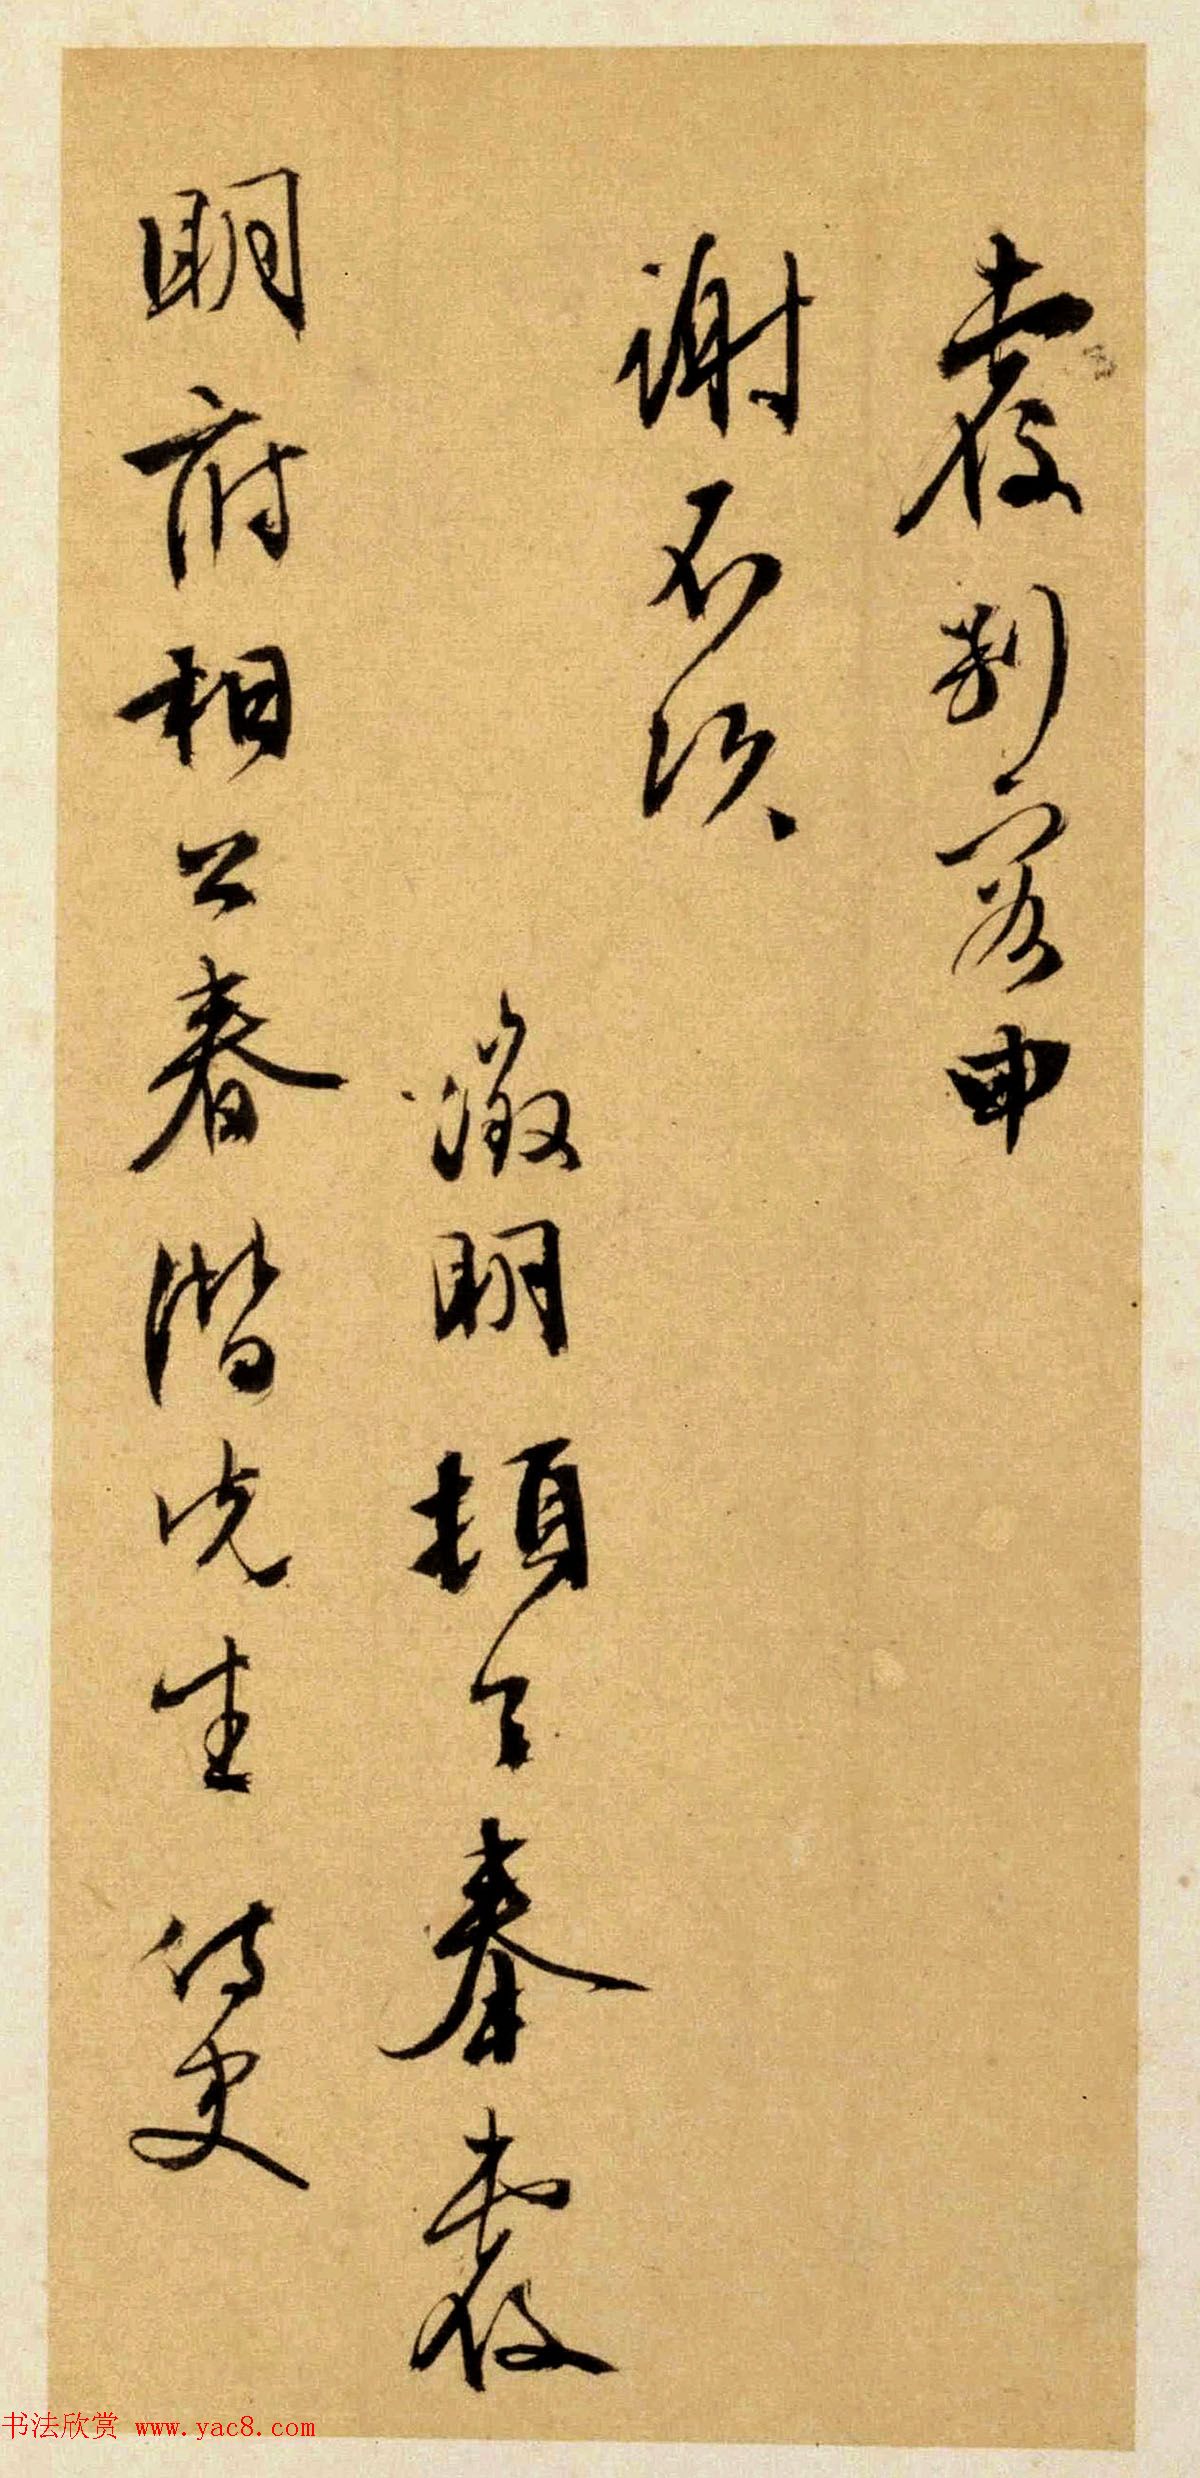 覆制容申
謝不次
徵明頓首奉覆
明府相公春潛先生侍史
书法欣赏 www.yac8.com